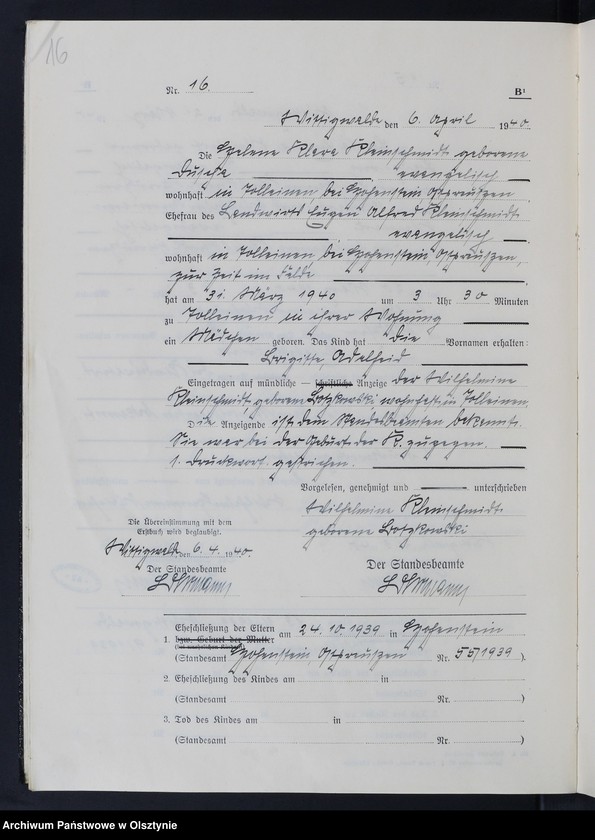 16
Nr. 16. B¹
Wittigwalde den 6. April 1940.
Die Helene Klara Kleinschmidt geborene
evangelisch
wohnhaft in Tolleinen, bei Hohenstein Ostpreußen
Ehefrau des Landwirts Eugen Alfred Kleinschmidt
evangelisch
wohnhaft in Tolleinen, bei Hohenstein, Ostpreußen,
zur Zeit im Felde
hat am 31. März 1940 um 3 Uhr 30 Minuten
zu Tolleinen in ihrer Wohnung
ein Mädchen geboren. Das Kind hat die Vornamen erhalten:
Brigitte, Adelheid
Eingetragen auf mündliche – schriftliche – Anzeige der Wilhelmine
Kleinschmidt, geborene Botzkowski wohnhaft in Tolleinen.
Die Anzeigende ist dem Standesbeamten bekannt.
Sie war bei der Geburt der K. zugegen.
1. Druckwort gestrichen.
Vorgelesen, genehmigt und unterschrieben
Wilhelmine Kleinschmidt
geborene Botzkowski
Die Übereinstimmung mit dem
Erstbuch wird beglaubigt.
Wittigwalde, den 6. 4. 1940.
Der Standesbeamte
Der Standesbeamte
1. Eheschließung der Eltern am 24. 10. 1939 in Hohenstein
bzw. Geburt der Mutter
(Standesamt Hohenstein Ostpreußen Nr. 55/1939).
2. Eheschließung des Kindes am in
(Standesamt Nr. )
3. Tod des Kindes am in
(Standesamt Nr. )
Archiwum Państwowe w Olsztynie